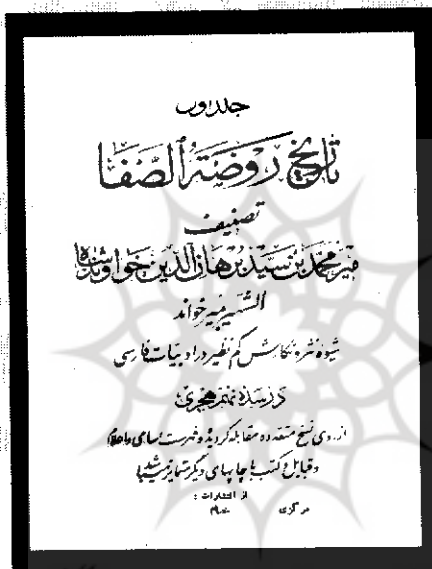 جلد اول
تاریخ روضة الصفا
تصنیف
میر محمد بن سید برهان الدین خواوندشاه
الشهیر بمیرخواند
شیوه نثر و نگارش کم نظیر در ادبیات فارسی
در سده نهم هجری
از روی نسخ متعدده مقابله گردیده و فهرست اسامی و اعلام
و قبایل و کتب با چاپهای دیگر متمایز میباشد
از انتشارات :
مرکزی